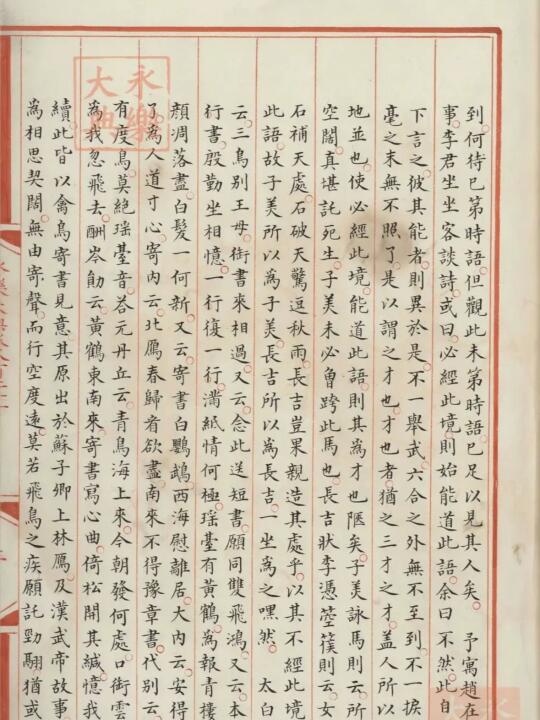 到何待已第時語但觀此未第時語已足以見其人矣 予寓趙在
事李君坐坐客談詩或曰必經此境則始能道此語余曰不然此自
下言之彼其能者則異於是不一舉武六合之外無不至到不一捩
毫之末無不照了是以謂之才也才也者猶之三才之才蓋人所以
地並也使必經此境能道此語則其為才也陋矣子美詠馬則云所
空闊真堪託死生子美未必曾跨此馬也長吉狀李憑箜篌則云女
石補天處石破天驚逗秋雨長吉豈果親造其處乎以其不經此境
此語故子美所以為子美長吉所以為長吉一坐為之嘿然 太白
云三鳥別王母銜書來相過又云念此送短書願同雙飛鴻又云本
行書殷勤坐相憶一行復一行滿紙情何極瑶臺有黃鶴為報青樓
顔凋落盡白髮一何新又云寄書白鸚鵡西海慰離居大內云安得
了為人道寸心寄內云北鴈春歸看欲盡南來不得豫章書代別云
有度鳥莫絶瑶臺音荅元丹丘云青鳥海上來今朝發何處口銜雲
為我忽飛去酬岑勛云黃鶴東南來寄書寫心曲倚松開其緘憶我
續此皆以禽鳥寄書見意其原出於蘇子卿上林鴈及漢武帝故事
為相思契闊無由寄聲而行空度遠莫若飛鳥之疾願託勁翮猶或
永樂大典